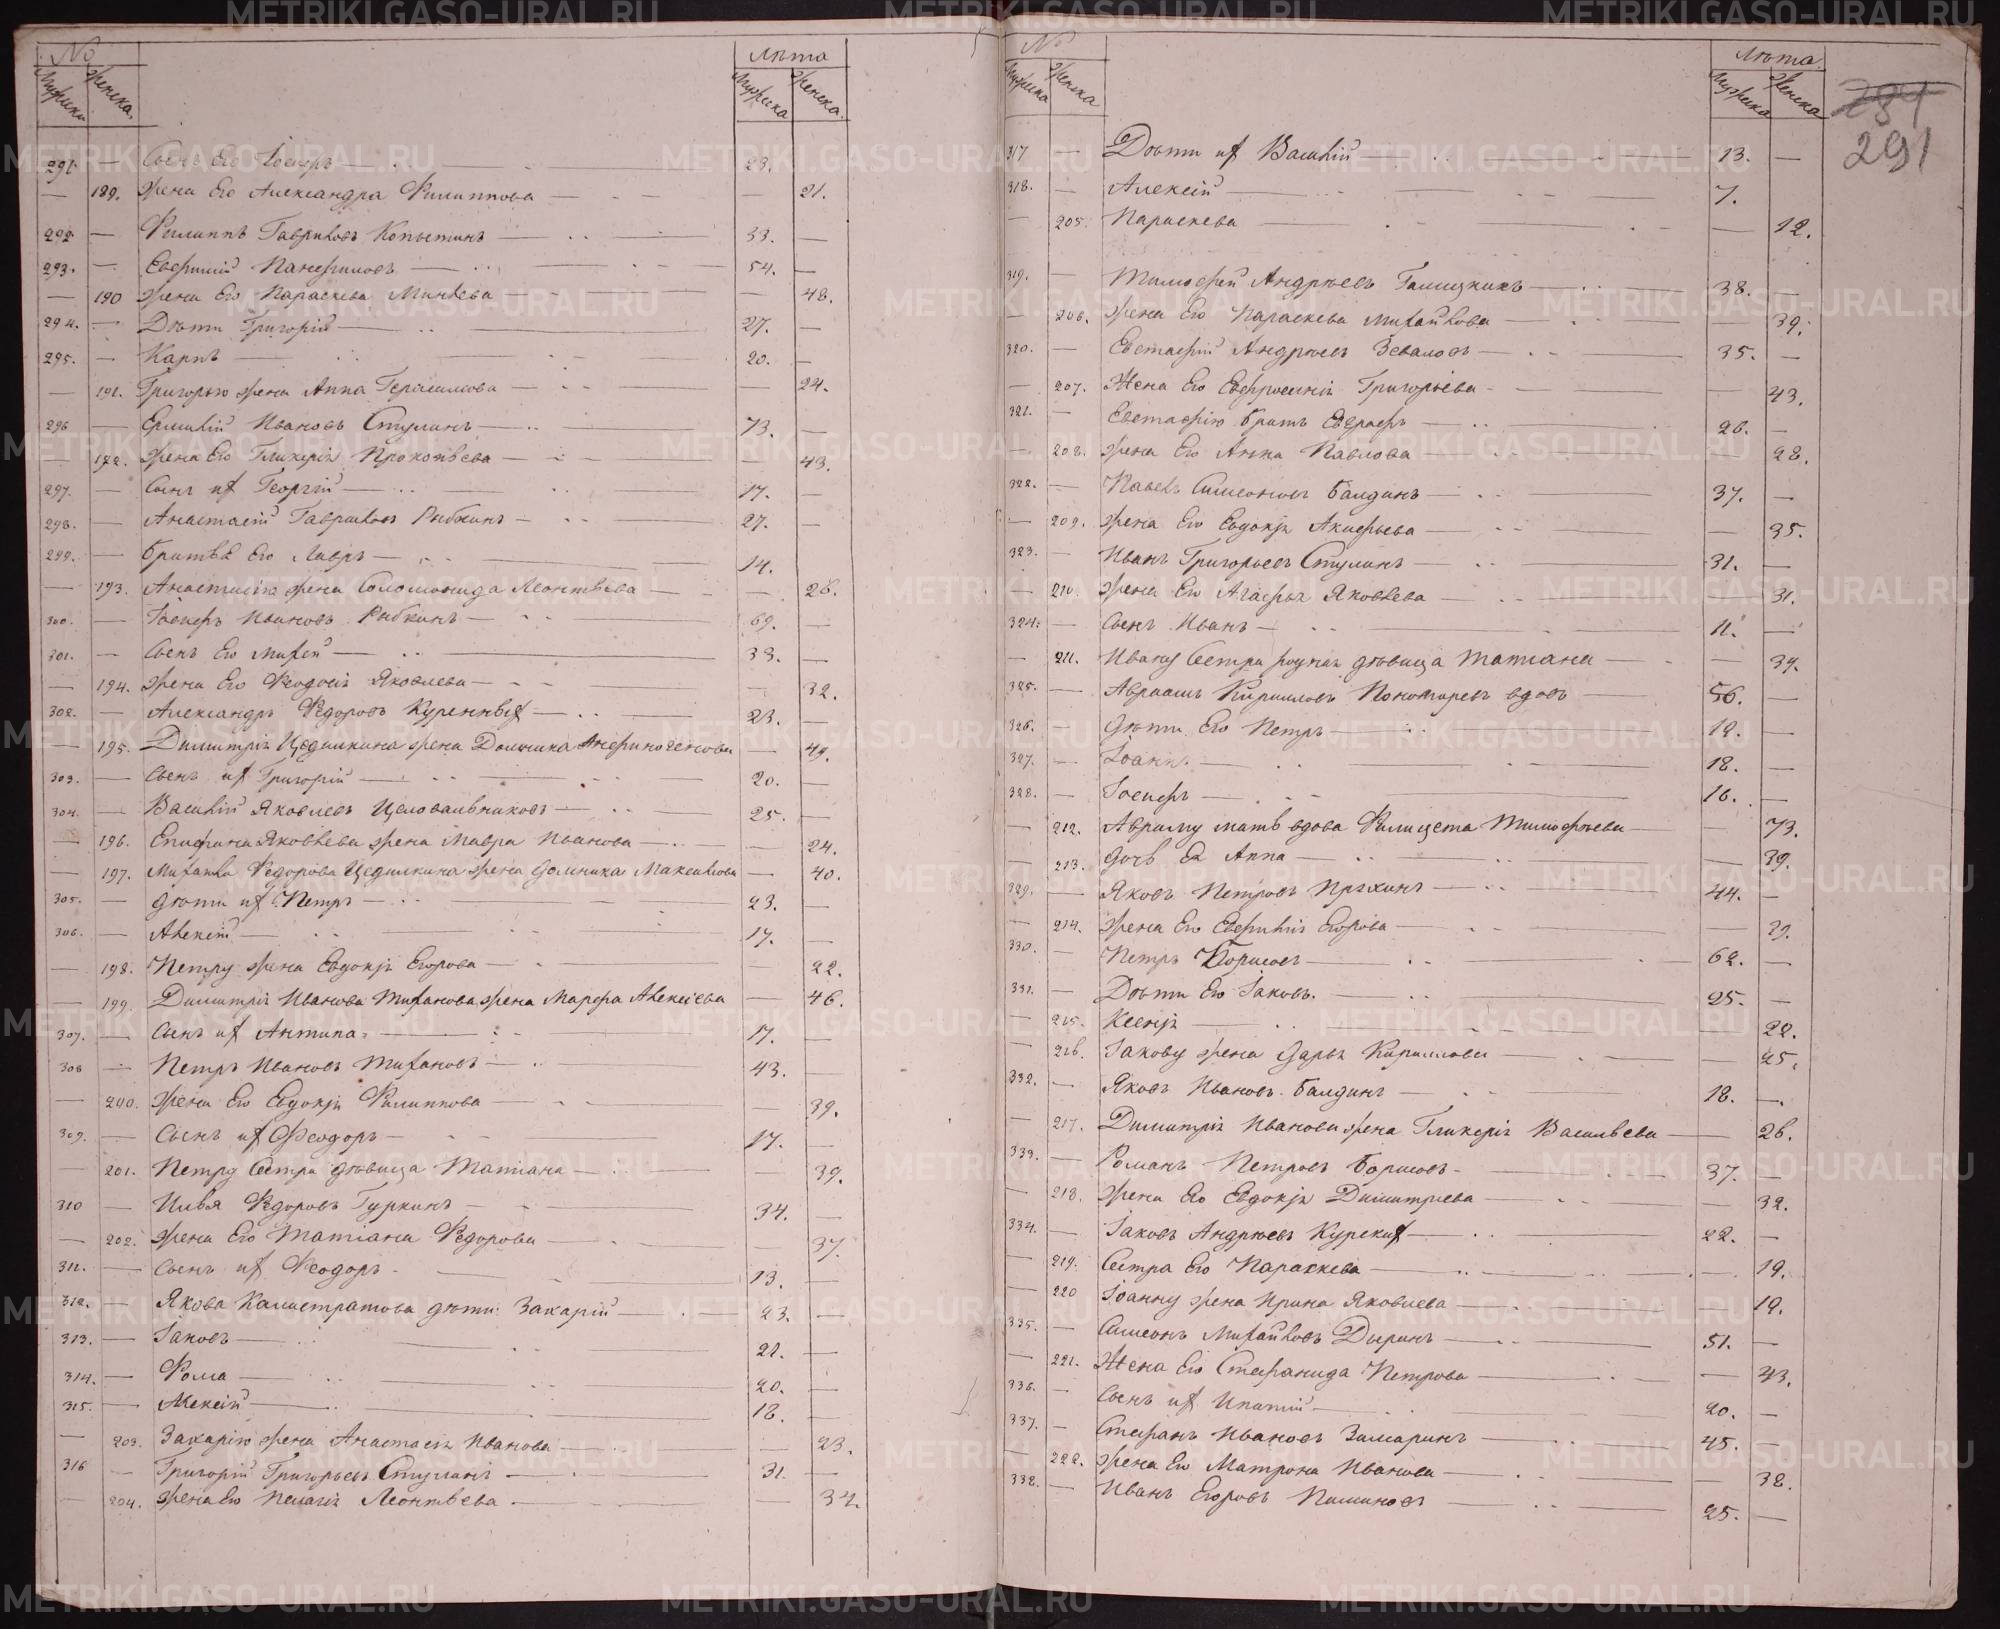 № Лѣта
Мужска Женска. Мужска Женска.
291. — Сынъ Его Іосифъ — 23.
— 189. жена Его Александра Филиппова — — 21.
292 — Филиппъ Гавриловъ Копытинъ — 33. —
293. — Евфимій Панфиловъ — 54. —
— 190 жена Его Параскева Минѣева — — 48.
294. — Дѣти Григорій — 27. —
295. — Карпъ — 20. —
— 191. Григорью жена Анна Герасимова — — 24.
296 — Ермилій Ивановъ Стулинъ — 73. —
— 192. жена Его Гликерія Прокопьева — — 43.
297. — Сынъ их Георгій — 17. —
298. — Анастасій Гавриловъ Рыбкинъ — 27. —
299. — братья Его Лавръ — 14.
— 193. Анастасія жена Соломонида Леонтьева — — 26.
300. — Іосифъ Ивановъ Рыбкинъ — 69. —
301. — Сынъ Его Михей — 33. —
— 194. жена Его Феодосія Яковлева — — 32.
302. — Александръ Федоровъ Куренных — 23. —
— 195. Димитрія Цедилкина жена Домника — 49.
303. — Сынъ их Григорій — 20. —
304. — Василій Яковлевъ Целовальниковъ — 25. —
— 196. Епифана Яковлева жена Мавра Иванова — — 24.
— 197. Михаила Федорова Цедилкина жена Домника Максимова — — 40.
305. — дѣти их Петръ — 23. —
306. — Алексій — 17. —
— 198. Петру жена Евдокія Егорова — — 22.
— 199. Димитрія Иванова Тиханова жена Марфа Алексѣева — — 46.
307. — Сынъ их Антипа — 17. —
308 — Петръ Ивановъ Тихановъ — 43. —
— 200. жена Его Евдокія Филиппова — — 39.
309. — Сынъ их Феодоръ — 17. —
— 201. Петру Сестра дѣвица Татіана — — 39.
310 — Илья Федоровъ Гуркинъ — 34. —
— 202. жена Его Татіана Федорова — — 37.
311. — Сынъ их Феодоръ — 13. —
312. — Якова Калистратова дѣти: Захарій — 23. —
313. — Іаковъ — 21. —
314. — Фома — 20. —
315. — Алексій — 18. —
— 203. Захарію жена Анастасія Иванова — — 23.
316 — Григорій Григорьевъ Стулинъ — 31. —
— 204. жена Его Пелагія Леонтьева — — 34.
№ Лѣта.
Мужска Женска Мужска Женска
284
291
317 — Дѣти их Василій — 13. —
318. — Алексій — 7.
— 205. Параскева — — 12.
319. — Тимофей Андреевъ Галицкихъ — 38. —
— 206. жена Его Параскева Михайлова — — 39.
320. — Евстафій Андреевъ Зеваловъ — 35. —
— 207. Жена Его Евфросинія Григорьева — — 43.
321. — Евстафію братъ Евграфъ — 26. —
— 208. жена Его Анна Павлова — — 28.
322. — Павелъ Симеоновъ Балдинъ — 37. —
— 209. жена Его Евдокія Акифьева — — 35.
323. — Иванъ Григорьевъ Стулинъ — 31. —
— 210. жена Его Агафья Яковлева — — 31.
324. — Сынъ Иванъ — 11. —
— 211. Ивану Сестра родная дѣвица Татіана — — 39.
325. — Авраамъ Кирилловъ Пономаревъ вдовъ — 56. —
326. — дѣти Его Петръ — 19. —
327. — Іоаннъ. — 18. —
328. — Іосифъ — 16. —
— 212. Авраму мать вдова Филицета Тимофѣева — — 73.
— 213. дочь Ея Анна — — 39.
329. — Яковъ Петровъ Пряхинъ — 44. —
— 214. жена Его Евфимія Егорова — — 29.
330. — Петръ Борисов — 62. —
331. — Дѣти Его Іаковъ. — 25. —
— 215. Ксенія — — 22.
— 216. Іакову жена Дарья Кириллова — — 25.
332. — Яковъ Ивановъ Балдинъ — 18. —
— 217. Димитрія Иванова жена Гликерія Васильева — — 26.
333. — Романъ Петровъ Борисовъ — 37. —
— 218. жена Его Евдокія Димитриева — — 32.
334. — Іаковъ Андреевъ Курских — 22. —
— 219. Сестра Его Параскева — — 19.
— 220 Іоанну жена Ирина Яковлева — — 19.
335. — Симеонъ Михайловъ Дыринъ — 51. —
— 221. Жена Его Стефанида Петрова — — 43.
336. — Сынъ их Ипатій — 20. —
337. — Стефанъ Ивановъ Зимаринъ — 45. —
— 222. жена Его Матрона Иванова — — 38.
338. — Иванъ Егоровъ Пиминовъ — 25. —
METRIKI.GASO-URAL.RU